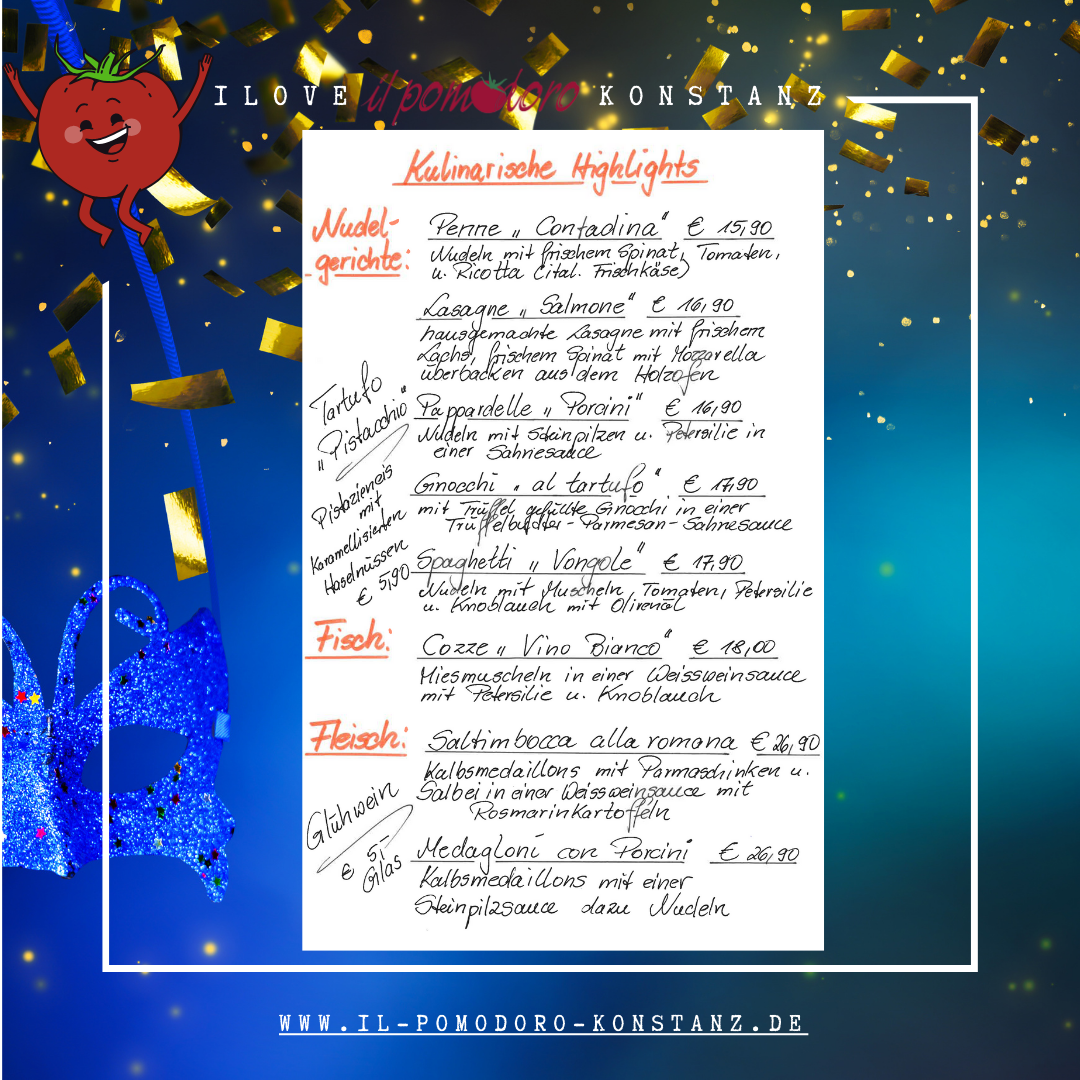 I LOVE il pomodoro KONSTANZ
Kulinarische Highlights
Nudel-
gerichte:
Penne „Contadina“ € 15,90
Nudeln mit frischem Spinat, Tomaten,
u. Ricotta (ital. Frischkäse)
Lasagne „Salmone“ € 16,90
hausgemachte Lasagne mit frischem
Lachs, frischem Spinat mit Mozzarella
überbacken aus dem Holzofen
Pappardelle „Porcini“ € 16,90
Nudeln mit Steinpilzen u. Petersilie in
einer Sahnesauce
Gnocchi „al tartufo“ € 17,90
mit Trüffel gefüllte Gnocchi in einer
Trüffelbutter-Parmesan-Sahnesauce
Spaghetti „Vongole“ € 17,90
Nudeln mit Muscheln, Tomaten, Petersilie
u. Knoblauch mit Olivenöl
Tartufo
„Pistacchio“
Pistazieneis
mit
Karamellisierten
Haselnüssen
€ 5,90
Fisch:
Cozze „Vino Bianco“ € 18,00
Miesmuscheln in einer Weissweinsauce
mit Petersilie u. Knoblauch
Fleisch:
Saltimbocca alla romana € 26,90
Kalbsmedaillons mit Parmaschinken u.
Salbei in einer Weissweinsauce mit
Rosmarinkartoffeln
Medagloni con Porcini € 26,90
Kalbsmedaillons mit einer
Steinpilzsauce dazu Nudeln
Glühwein
€ 5,-
Glas
WWW.IL-POMODORO-KONSTANZ.DE